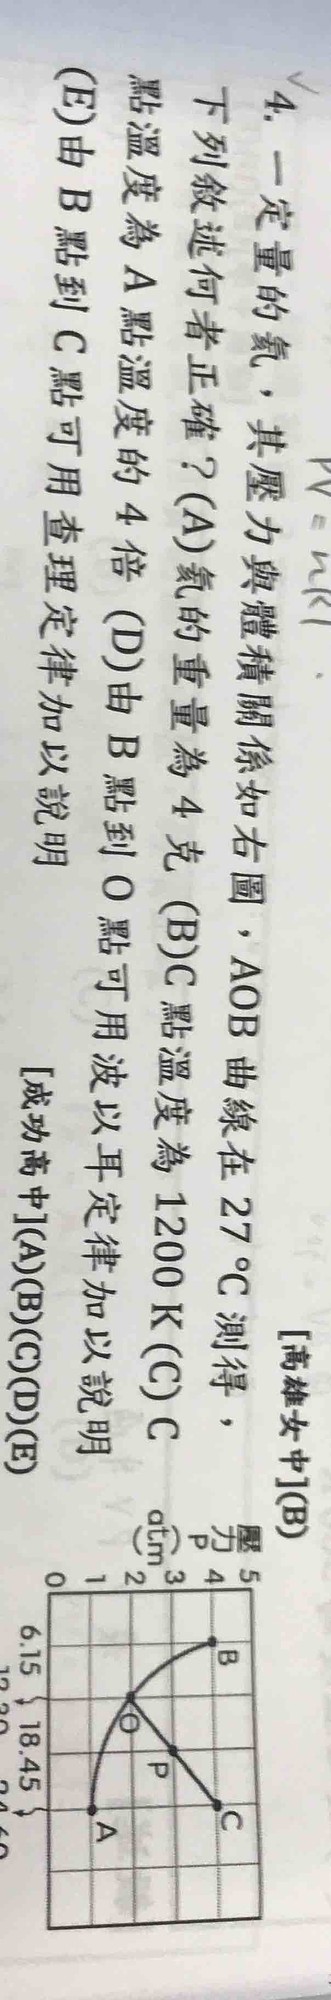 PV = nRT
[高雄女中](B)
4. 一定量的氦，其壓力與體積關係如右圖，AOB 曲線在 27 ℃ 測得，
下列敘述何者正確？(A)氦的重量為 4 克 (B)C 點溫度為 1200 K (C) C
點溫度為 A 點溫度的 4 倍 (D)由 B 點到 O 點可用波以耳定律加以說明
(E)由 B 點到 C 點可用查理定律加以說明
[成功高中](A)(B)(C)(D)(E)
壓力 P (atm)
5
4
3
2
1
0
B
C
P
O
A
6.15
18.45
12.30
24.60